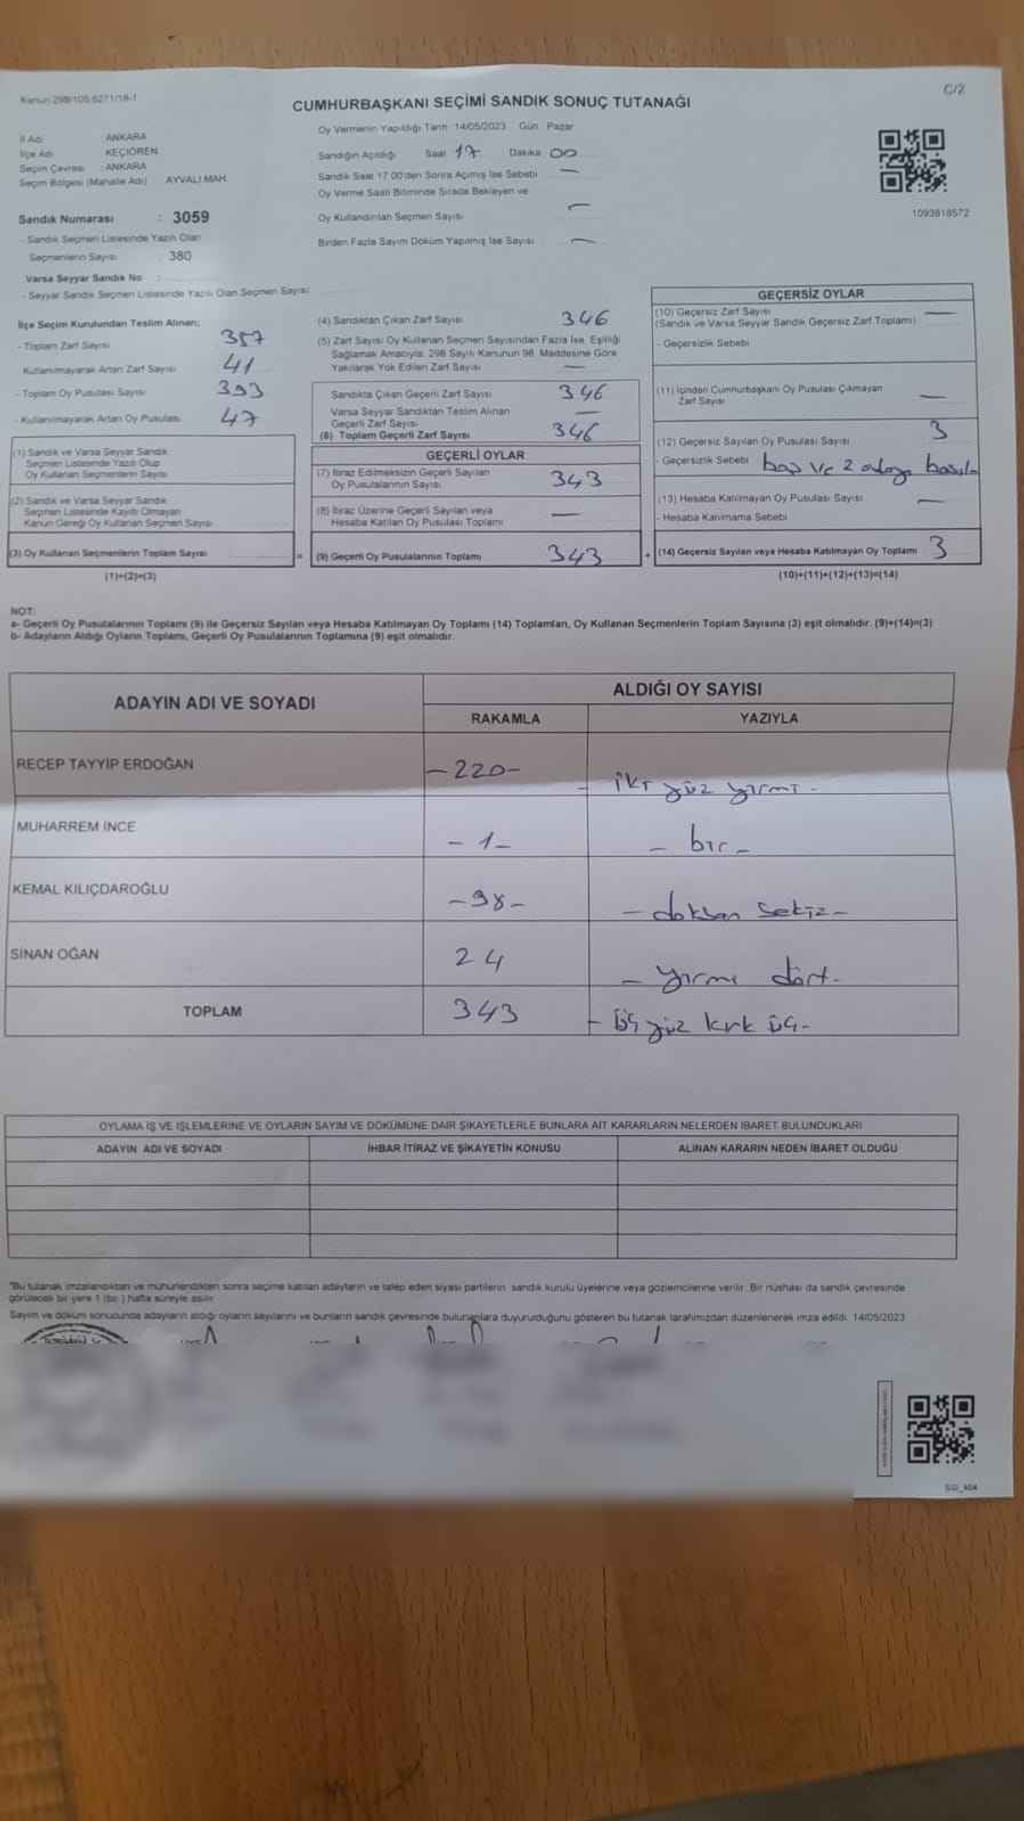 Kanun 298/105,6271/18-1
C/2
CUMHURBAŞKANI SEÇİMİ SANDIK SONUÇ TUTANAĞI
İl Adı : ANKARA
İlçe Adı : KEÇİÖREN
Seçim Çevresi : ANKARA
Seçim Bölgesi (Mahalle Adı) AYVALI MAH.
Sandık Numarası : 3059
- Sandık Seçmen Listesinde Yazılı Olan
Seçmenlerin Sayısı 380
Varsa Seyyar Sandık No :
- Seyyar Sandık Seçmen Listesinde Yazılı Olan Seçmen Sayısı
Oy Vermenin Yapıldığı Tarih 14/05/2023 Gün Pazar
Sandığın Açıldığı Saat 17 Dakika 00
Sandık Saat 17.00'den Sonra Açılmış İse Sebebi —
Oy Verme Saati Bitiminde Sırada Bekleyen ve
Oy Kullandırılan Seçmen Sayısı —
Birden Fazla Sayım Döküm Yapılmış İse Sayısı —
1093818572
İlçe Seçim Kurulundan Teslim Alınan;
- Toplam Zarf Sayısı 357
- Kullanılmayarak Artan Zarf Sayısı 41
- Toplam Oy Pusulası Sayısı 393
- Kullanılmayarak Artan Oy Pusulası 47
(1) Sandık ve Varsa Seyyar Sandık
Seçmen Listesinde Yazılı Olup
Oy Kullanan Seçmenlerin Sayısı
(2) Sandık ve Varsa Seyyar Sandık
Seçmen Listesinde Kayıtlı Olmayan
Kanun Gereği Oy Kullanan Seçmen Sayısı
(3) Oy Kullanan Seçmenlerin Toplam Sayısı =
(1)+(2)=(3)
(4) Sandıktan Çıkan Zarf Sayısı 346
(5) Zarf Sayısı Oy Kullanan Seçmen Sayısından Fazla İse, Eşitliği
Sağlamak Amacıyla, 298 Sayılı Kanunun 98. Maddesine Göre
Yakılarak Yok Edilen Zarf Sayısı —
Sandıkta Çıkan Geçerli Zarf Sayısı 346
Varsa Seyyar Sandıktan Teslim Alınan
Geçerli Zarf Sayısı —
(6) Toplam Geçerli Zarf Sayısı 346
GEÇERLİ OYLAR
(7) İtiraz Edilmeksizin Geçerli Sayılan
Oy Pusulalarının Sayısı 343
(8) İtiraz Üzerine Geçerli Sayılan veya
Hesaba Katılan Oy Pusulası Toplamı —
(9) Geçerli Oy Pusulalarının Toplamı 343 +
GEÇERSİZ OYLAR
(10) Geçersiz Zarf Sayısı —
(Sandık ve Varsa Seyyar Sandık Geçersiz Zarf Toplamı)
- Geçersizlik Sebebi
(11) İçinden Cumhurbaşkanı Oy Pusulası Çıkmayan
Zarf Sayısı —
(12) Geçersiz Sayılan Oy Pusulası Sayısı 3
- Geçersizlik Sebebi boş ve 2 adaya
(13) Hesaba Katılmayan Oy Pusulası Sayısı —
- Hesaba Katılmama Sebebi
(14) Geçersiz Sayılan veya Hesaba Katılmayan Oy Toplamı 3
(10)+(11)+(12)+(13)=(14)
NOT:
a- Geçerli Oy Pusulalarının Toplamı (9) ile Geçersiz Sayılan veya Hesaba Katılmayan Oy Toplamı (14) Toplamları, Oy Kullanan Seçmenlerin Toplam Sayısına (3) eşit olmalıdır. (9)+(14)=(3)
b- Adayların Aldığı Oyların Toplamı, Geçerli Oy Pusulalarının Toplamına (9) eşit olmalıdır.
ADAYIN ADI VE SOYADI
ALDIĞI OY SAYISI
RAKAMLA YAZIYLA
RECEP TAYYİP ERDOĞAN -220- - iki yüz yirmi -
MUHARREM İNCE -1- - bir -
KEMAL KILIÇDAROĞLU -98- - doksan sekiz -
SİNAN OĞAN 24 - yirmi dört -
TOPLAM 343 - üç yüz kırk üç -
OYLAMA İŞ VE İŞLEMLERİNE VE OYLARIN SAYIM VE DÖKÜMÜNE DAİR ŞİKAYETLERLE BUNLARA AİT KARARLARIN NELERDEN İBARET BULUNDUKLARI
ADAYIN ADI VE SOYADI İHBAR İTİRAZ VE ŞİKAYETİN KONUSU ALINAN KARARIN NEDEN İBARET OLDUĞU
"Bu tutanak imzalandıktan ve mühürlendikten sonra seçime katılan adayların ve talep eden siyasi partilerin sandık kurulu üyelerine veya gözlemcilerine verilir. Bir nüshası da sandık çevresinde
görülecek bir yere 1 (bir) hafta süreyle asılır.
Sayım ve döküm sonucunda adayların aldığı oyların sayılarını ve bunların sandık çevresinde bulunanlara duyurulduğunu gösteren bu tutanak tarafımızdan düzenlenerek imza edildi. 14/05/2023